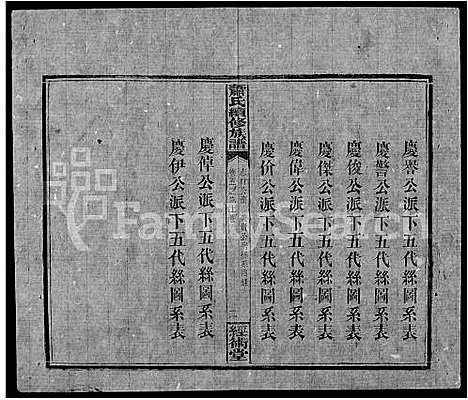 慶譽公派下五代絲圖系表
慶警公派下五代絲圖系表
慶俊公派下五代絲圖系表
慶傑公派下五代絲圖系表
慶偉公派下五代絲圖系表
慶价公派下五代絲圖系表
蕭氏續修族譜
經術堂
慶偉公派下五代絲圖系表
慶伊公派下五代絲圖系表
FamilySearch